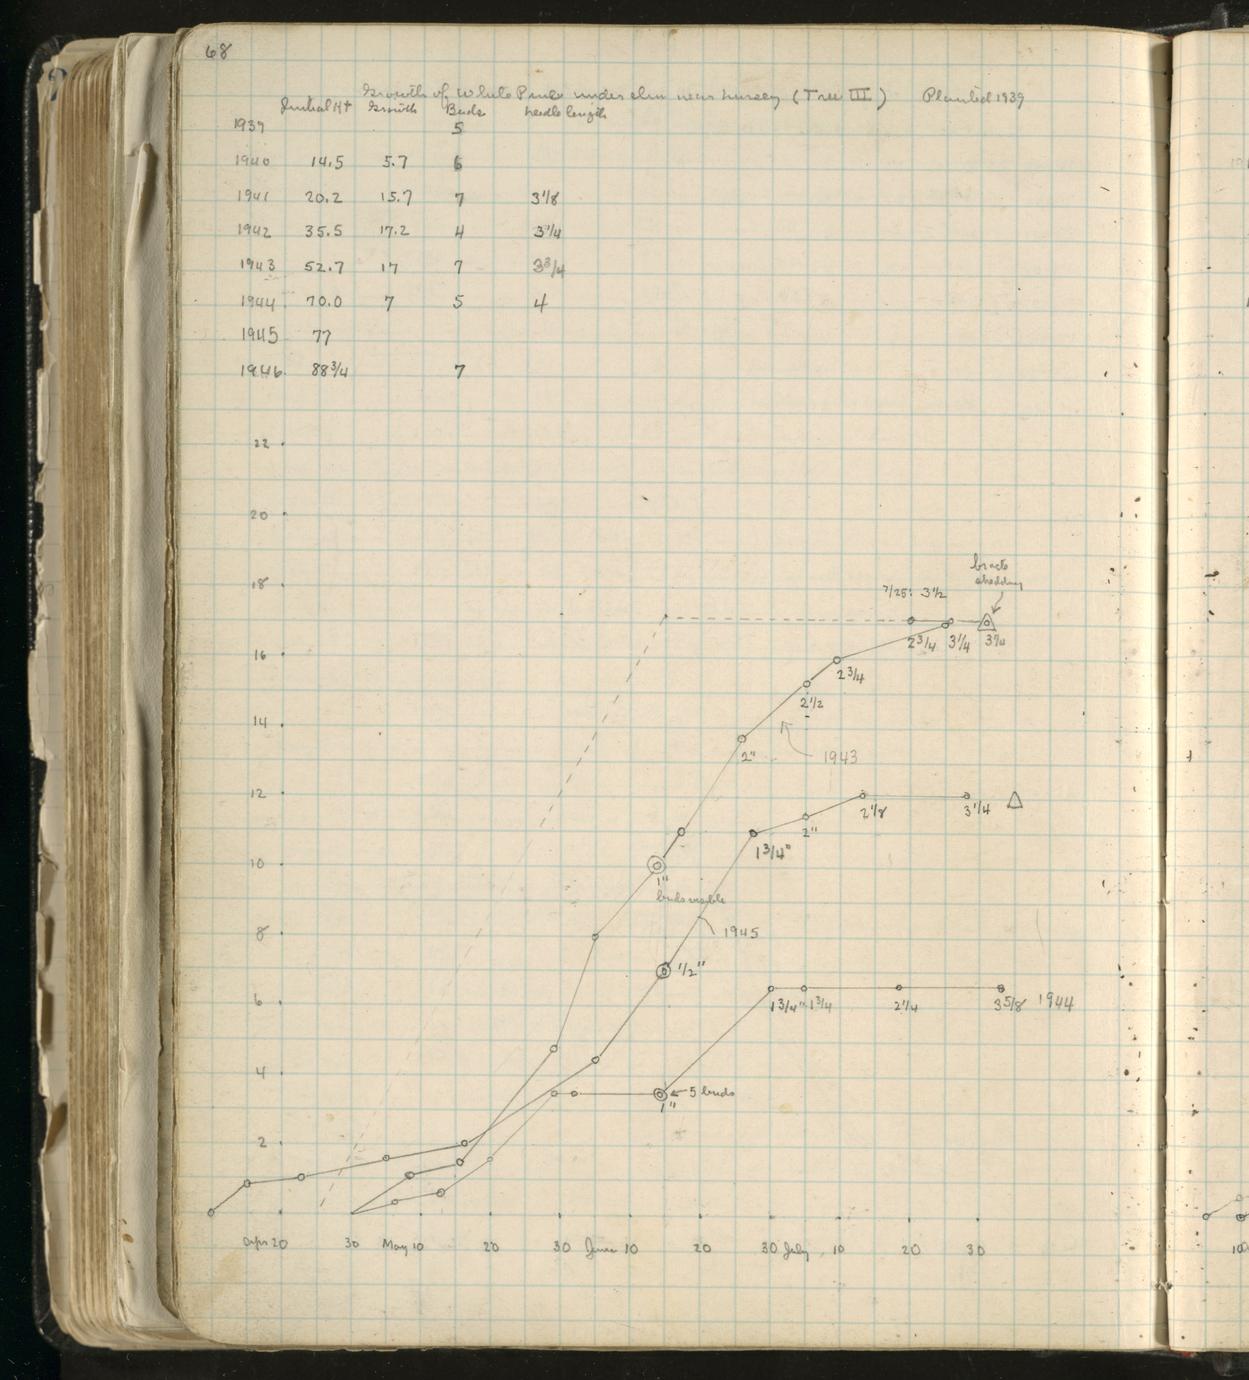 68
Growth of White Pine under elm near nursery (Tree III) Planted 1939
Initial Ht Growth Buds needle length
1939 5
1940 14.5 5.7 6
1941 20.2 15.7 7 3 1/8
1942 35.5 17.2 4 3 1/4
1943 52.7 17 7 3 3/4
1944 70.0 7 5 4
1945 77
1946 88 3/4 7
22
20
18
bracts
shedding
7/25: 3 1/2
16
2 3/4 3 1/4 3 3/4
2 3/4
2 1/2
14
2" 1943
12
2 1/8 3 1/4
2"
1 3/4"
10
1"
buds visible
8
1945
1/2"
6
1 3/4" 1 3/4 2 1/4 3 5/8 1944
4
5 buds
1"
2
Apr 20 30 May 10 20 30 June 10 20 30 July 10 20 30